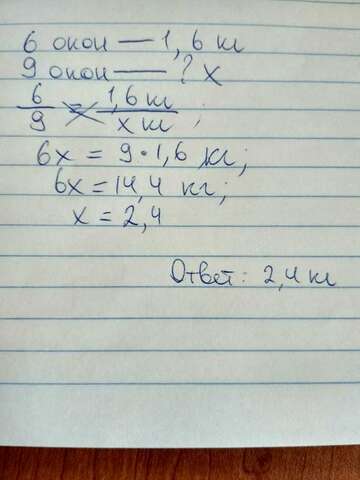 6 окон — 1,6 кг
9 окон — ? х
6/9 = 1,6 кг/х кг;
6х = 9·1,6 кг;
6х = 14,4 кг;
х = 2,4
Ответ: 2,4 кг